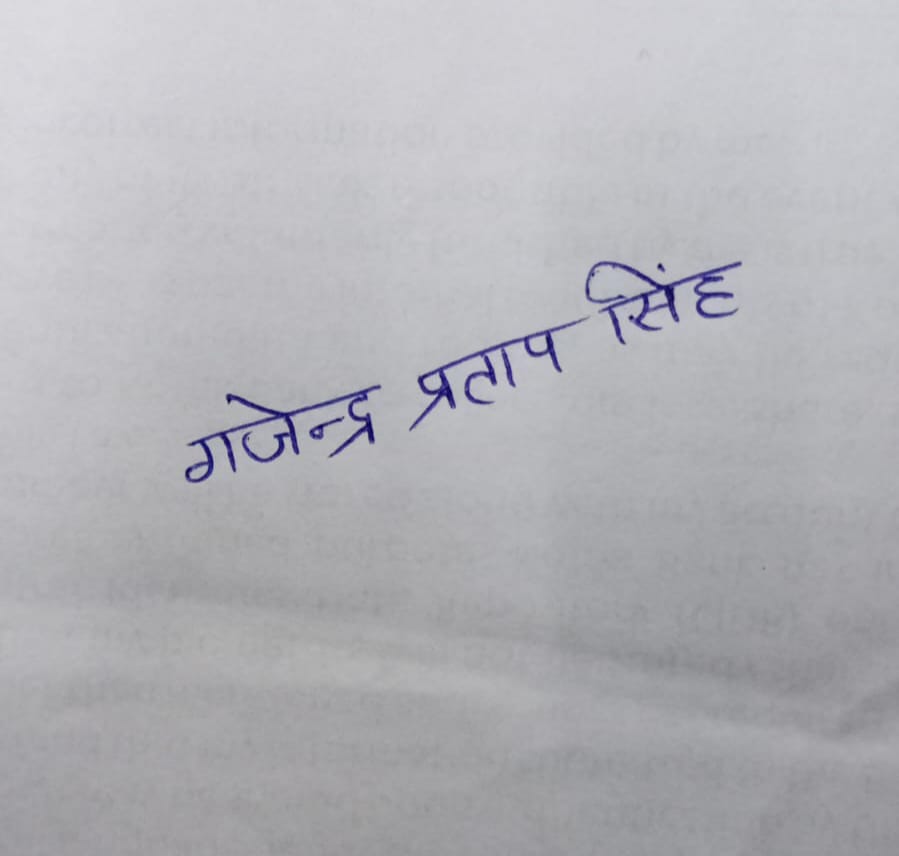 गजेन्द्र प्रताप सिंह